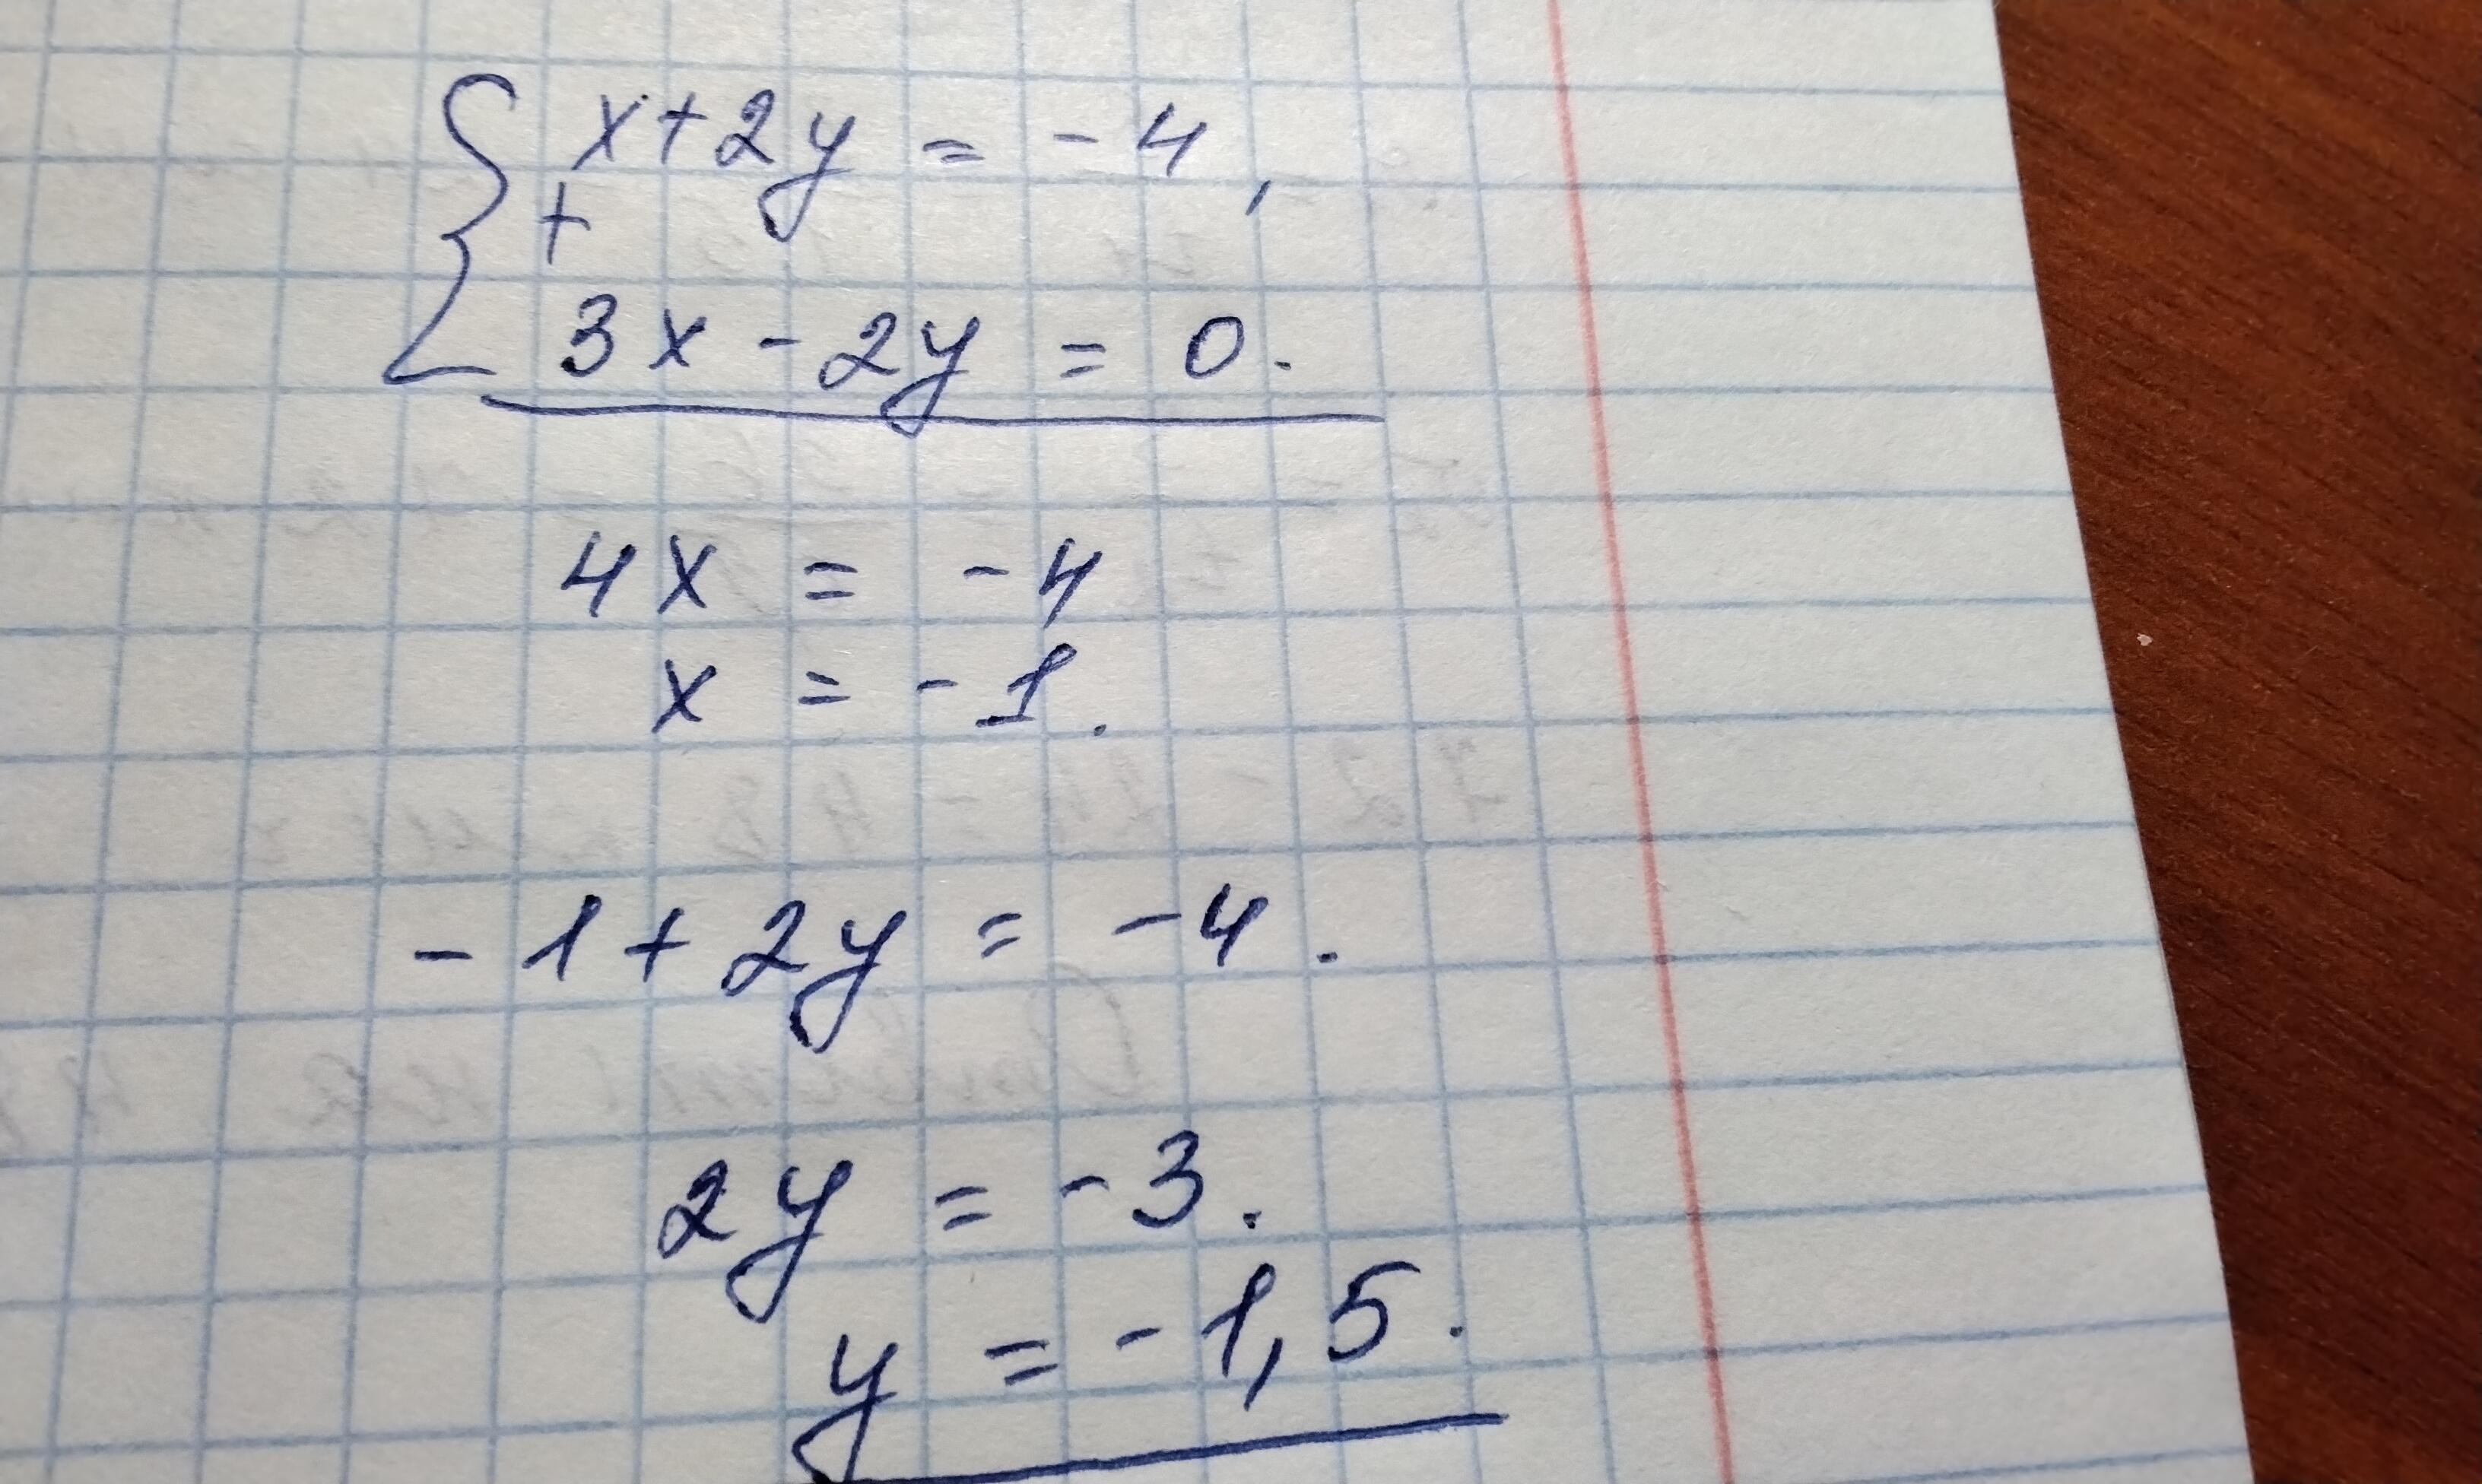 x + 2y = -4,
+
3x - 2y = 0.
4x = -4
x = -1.
-1 + 2y = -4.
2y = -3.
y = -1,5.